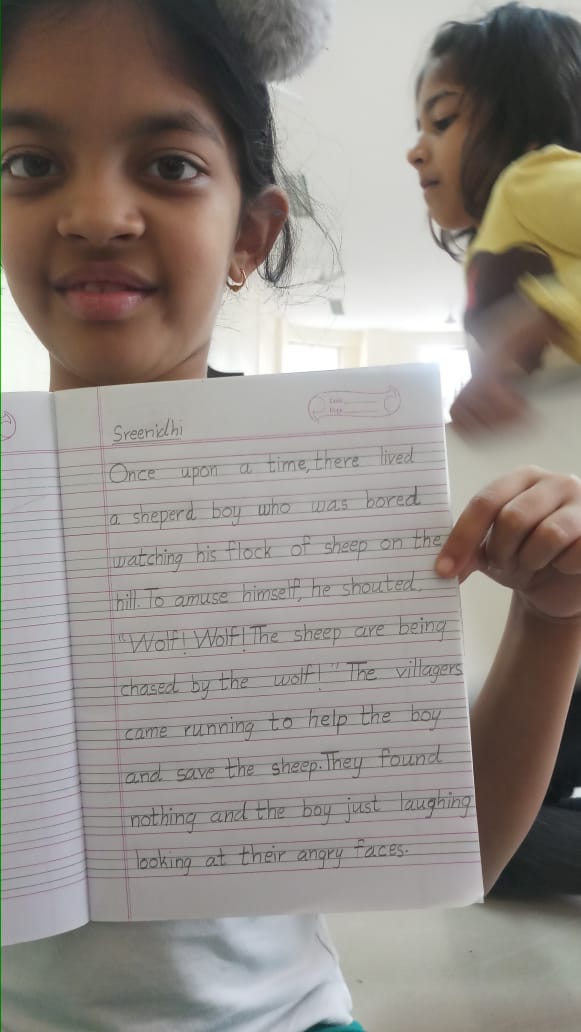 Date
Page
Sreenidhi
Once upon a time, there lived
a sheperd boy who was bored
watching his flock of sheep on the
hill. To amuse himself, he shouted,
"Wolf! Wolf! The sheep are being
chased by the wolf!" The villagers
came running to help the boy
and save the sheep. They found
nothing and the boy just laughing
looking at their angry faces.